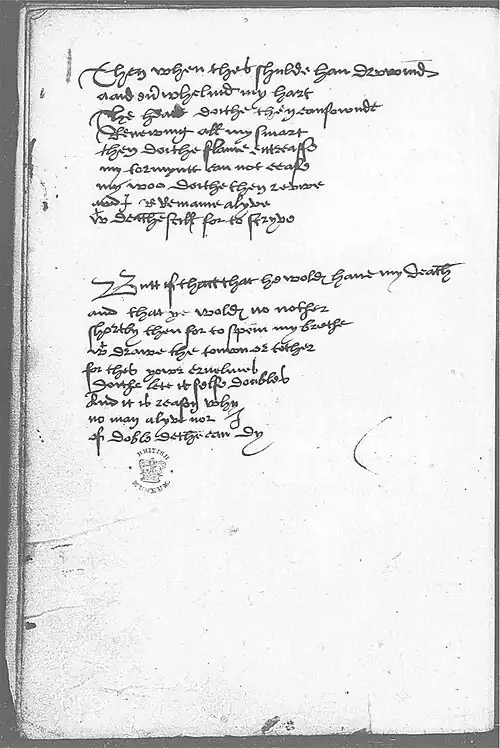 Then when thes shulde han drowind
and overwhelmid my hart
the heat doithe then confownde
Renewing all my smart
then doithe flame encreasse
my tormynt can not ceas
my woo doithe then revive
and I remaine alyve
wt deathe still for to stryve
Butt if that that he wolde have my death
and that ye wolde no nother
shortly then for to spem my brethe
wt drawe the ton or tother
for thes yowr cruelnes
doithe lett it selfe doubtles
And it is reason why
no man alyve nor I
of doble dethe can dy
BRITISH MUSEUM